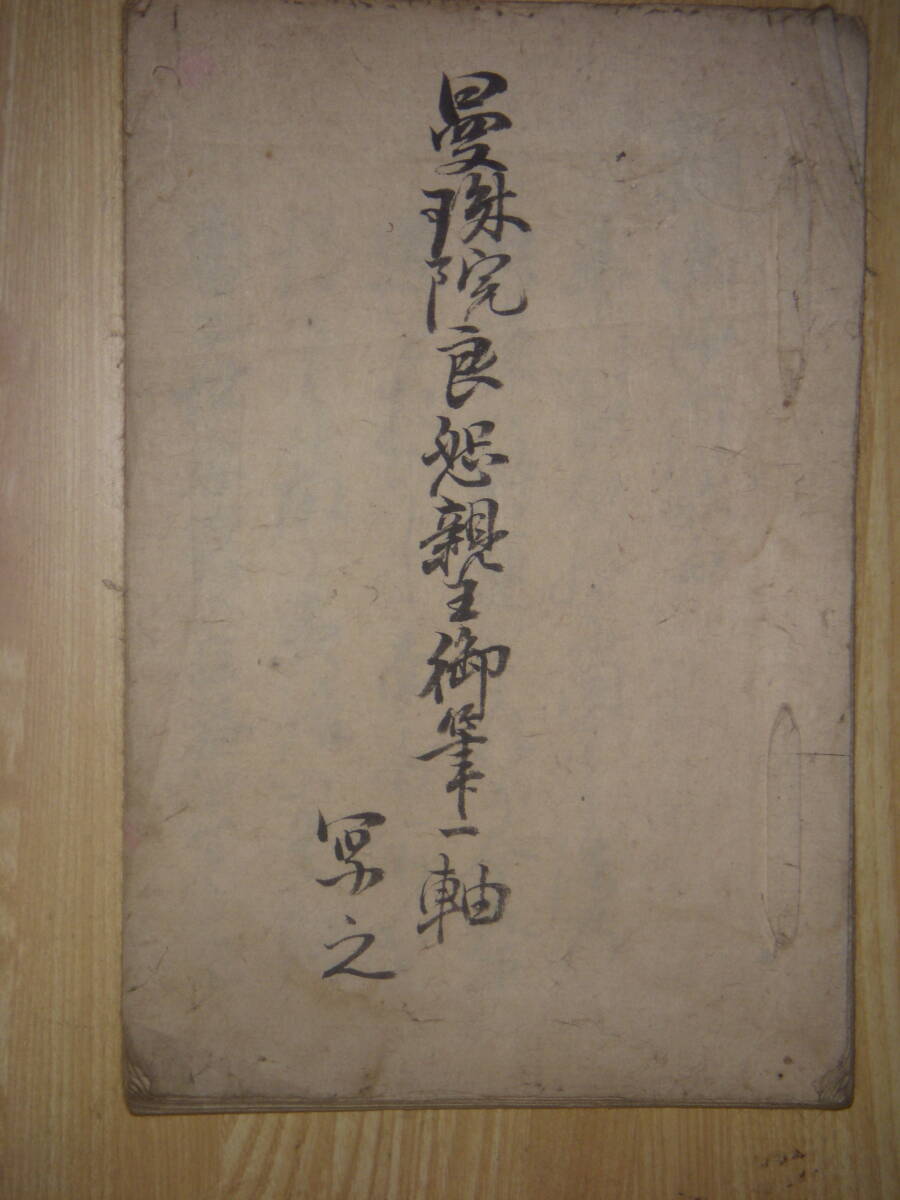 曼殊院良恕親王御筆一軸
冩之